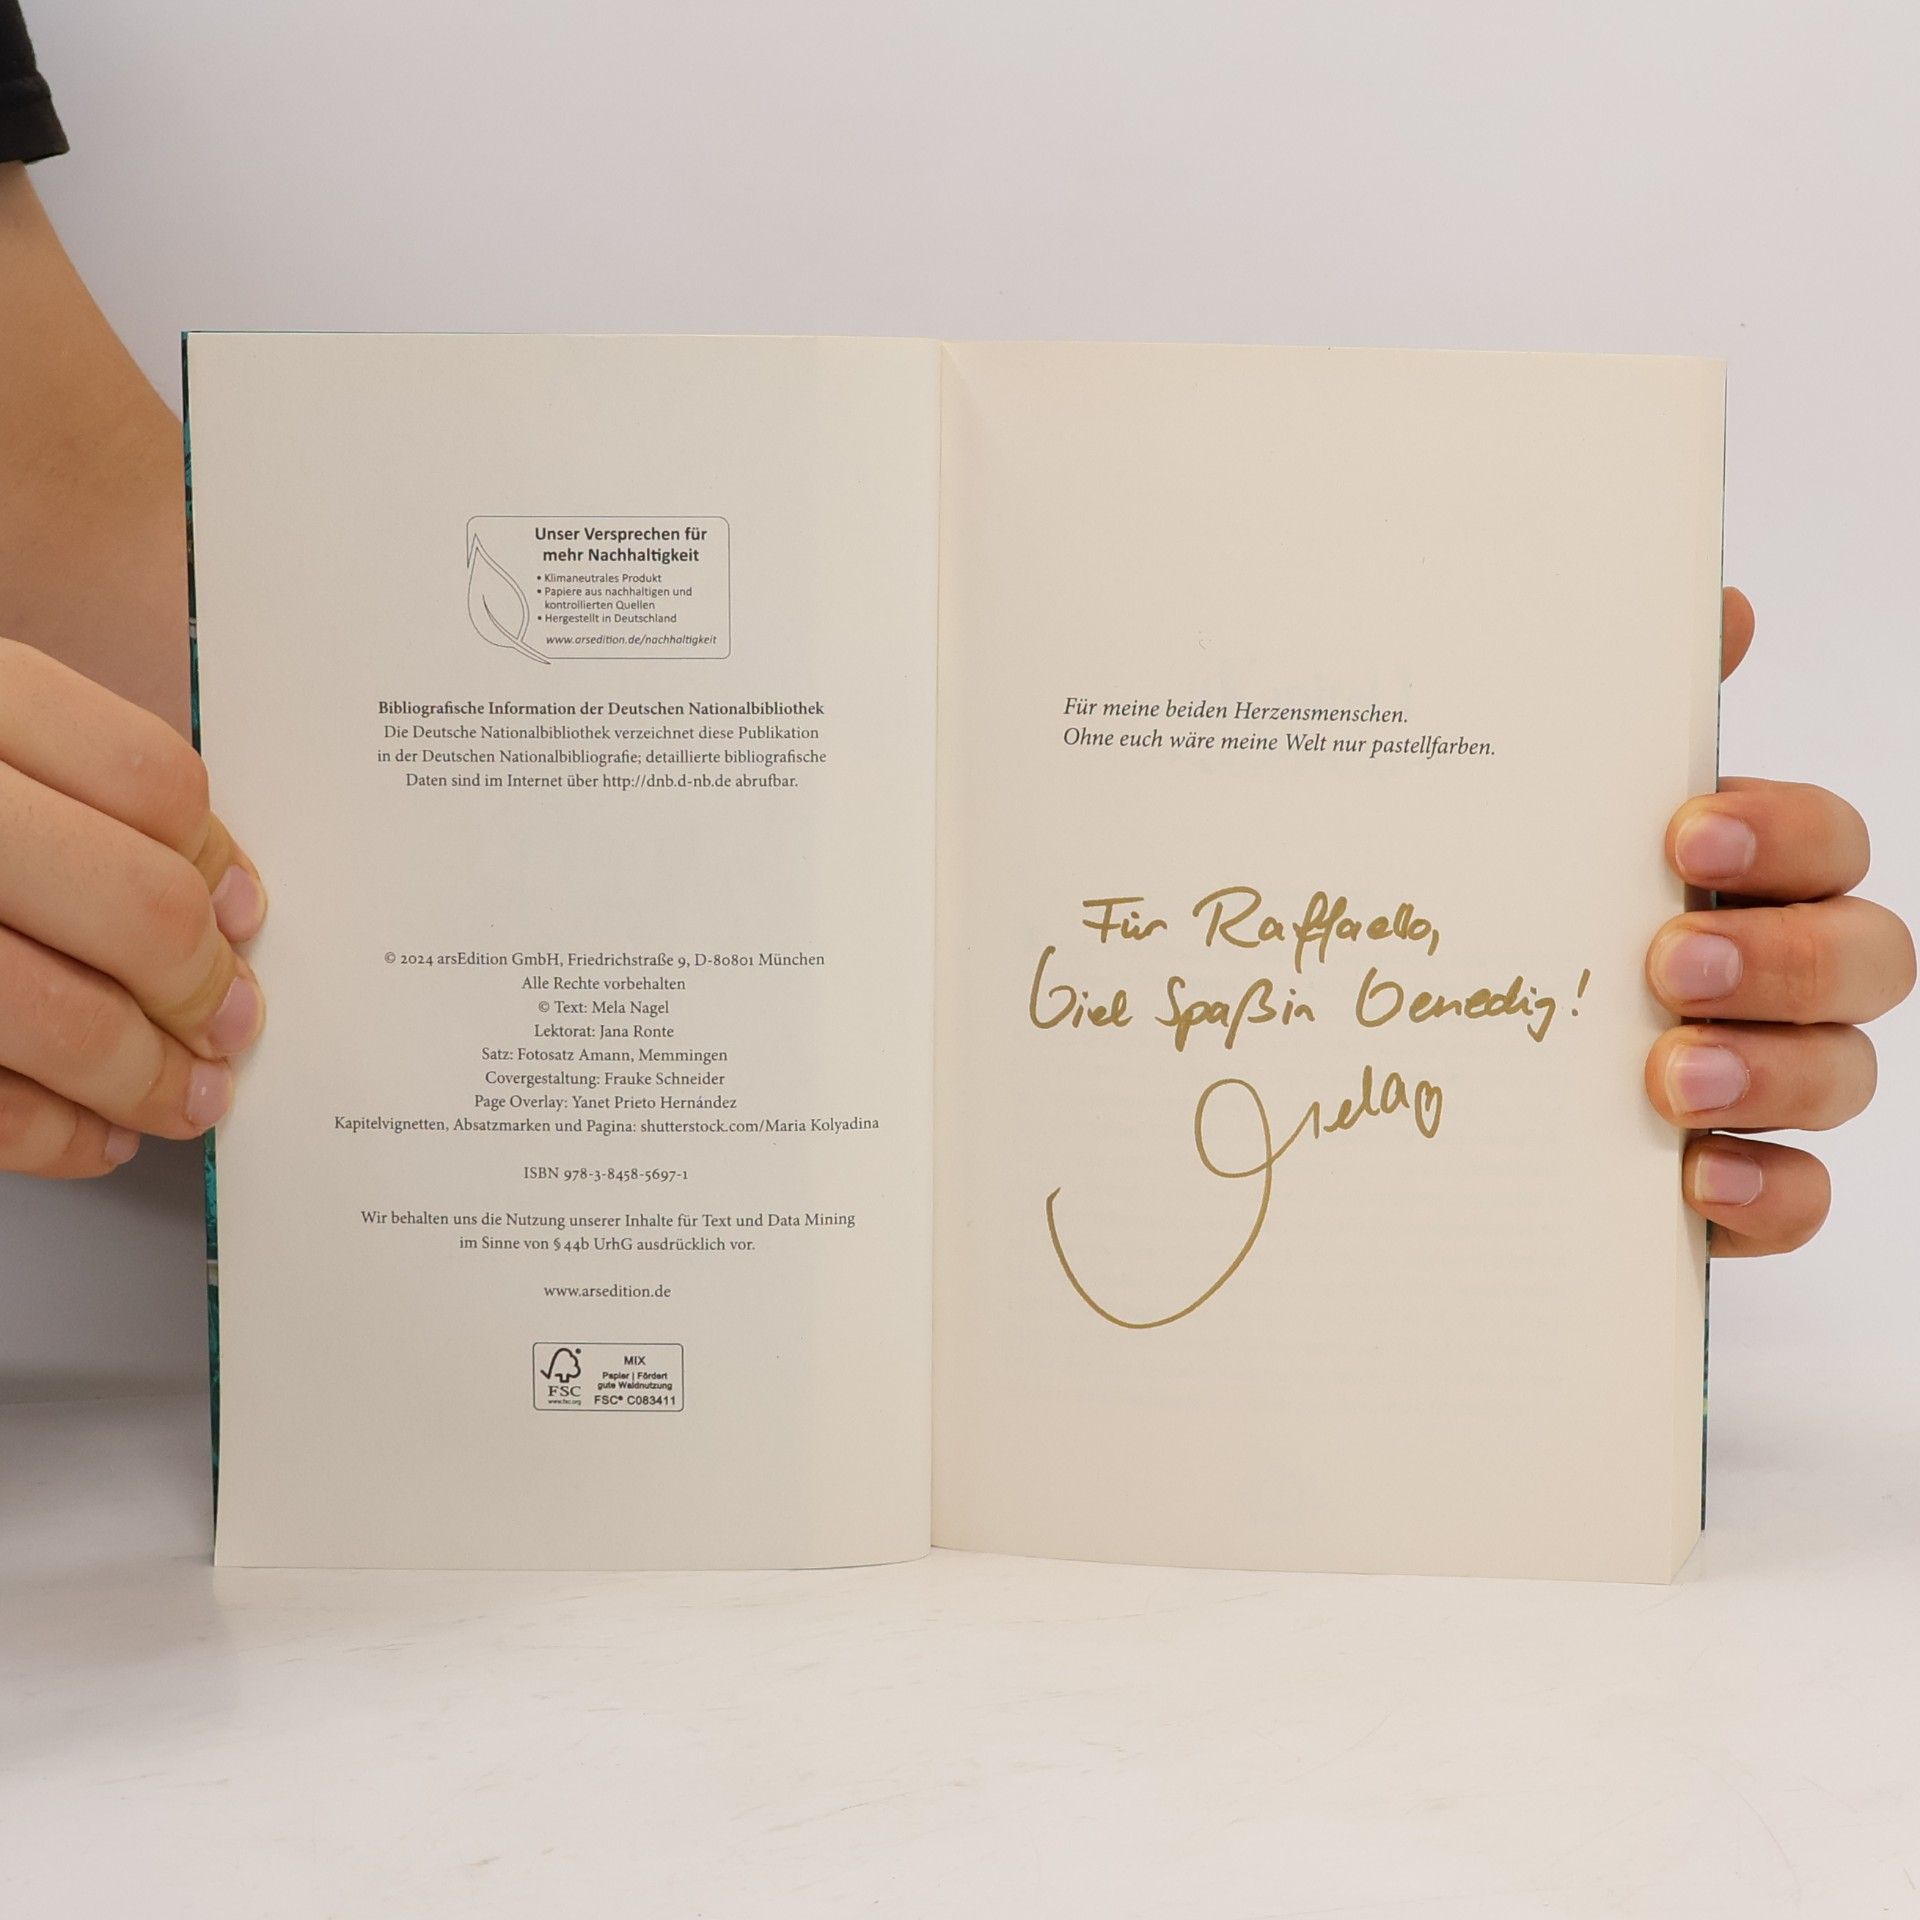 Unser Versprechen für
mehr Nachhaltigkeit
• Klimaneutrales Produkt
• Papiere aus nachhaltigen und
kontrollierten Quellen
• Hergestellt in Deutschland
www.arsedition.de/nachhaltigkeit
Bibliografische Information der Deutschen Nationalbibliothek
Die Deutsche Nationalbibliothek verzeichnet diese Publikation
in der Deutschen Nationalbibliografie; detaillierte bibliografische
Daten sind im Internet über http://dnb.d-nb.de abrufbar.
© 2024 arsEdition GmbH, Friedrichstraße 9, D-80801 München
Alle Rechte vorbehalten
© Text: Mela Nagel
Lektorat: Jana Ronte
Satz: Fotosatz Amann, Memmingen
Covergestaltung: Frauke Schneider
Page Overlay: Yanet Prieto Hernández
Kapitelvignetten, Absatzmarken und Pagina: shutterstock.com/Maria Kolyadina
ISBN 978-3-8458-5697-1
Wir behalten uns die Nutzung unserer Inhalte für Text und Data Mining
im Sinne von § 44b UrhG ausdrücklich vor.
www.arsedition.de
FSC
www.fsc.org
MIX
Papier | Fördert
gute Waldnutzung
FSC® C083411
Für meine beiden Herzensmenschen.
Ohne euch wäre meine Welt nur pastellfarben.
Für Raffaello,
Viel Spaß in Venedig!
Mela